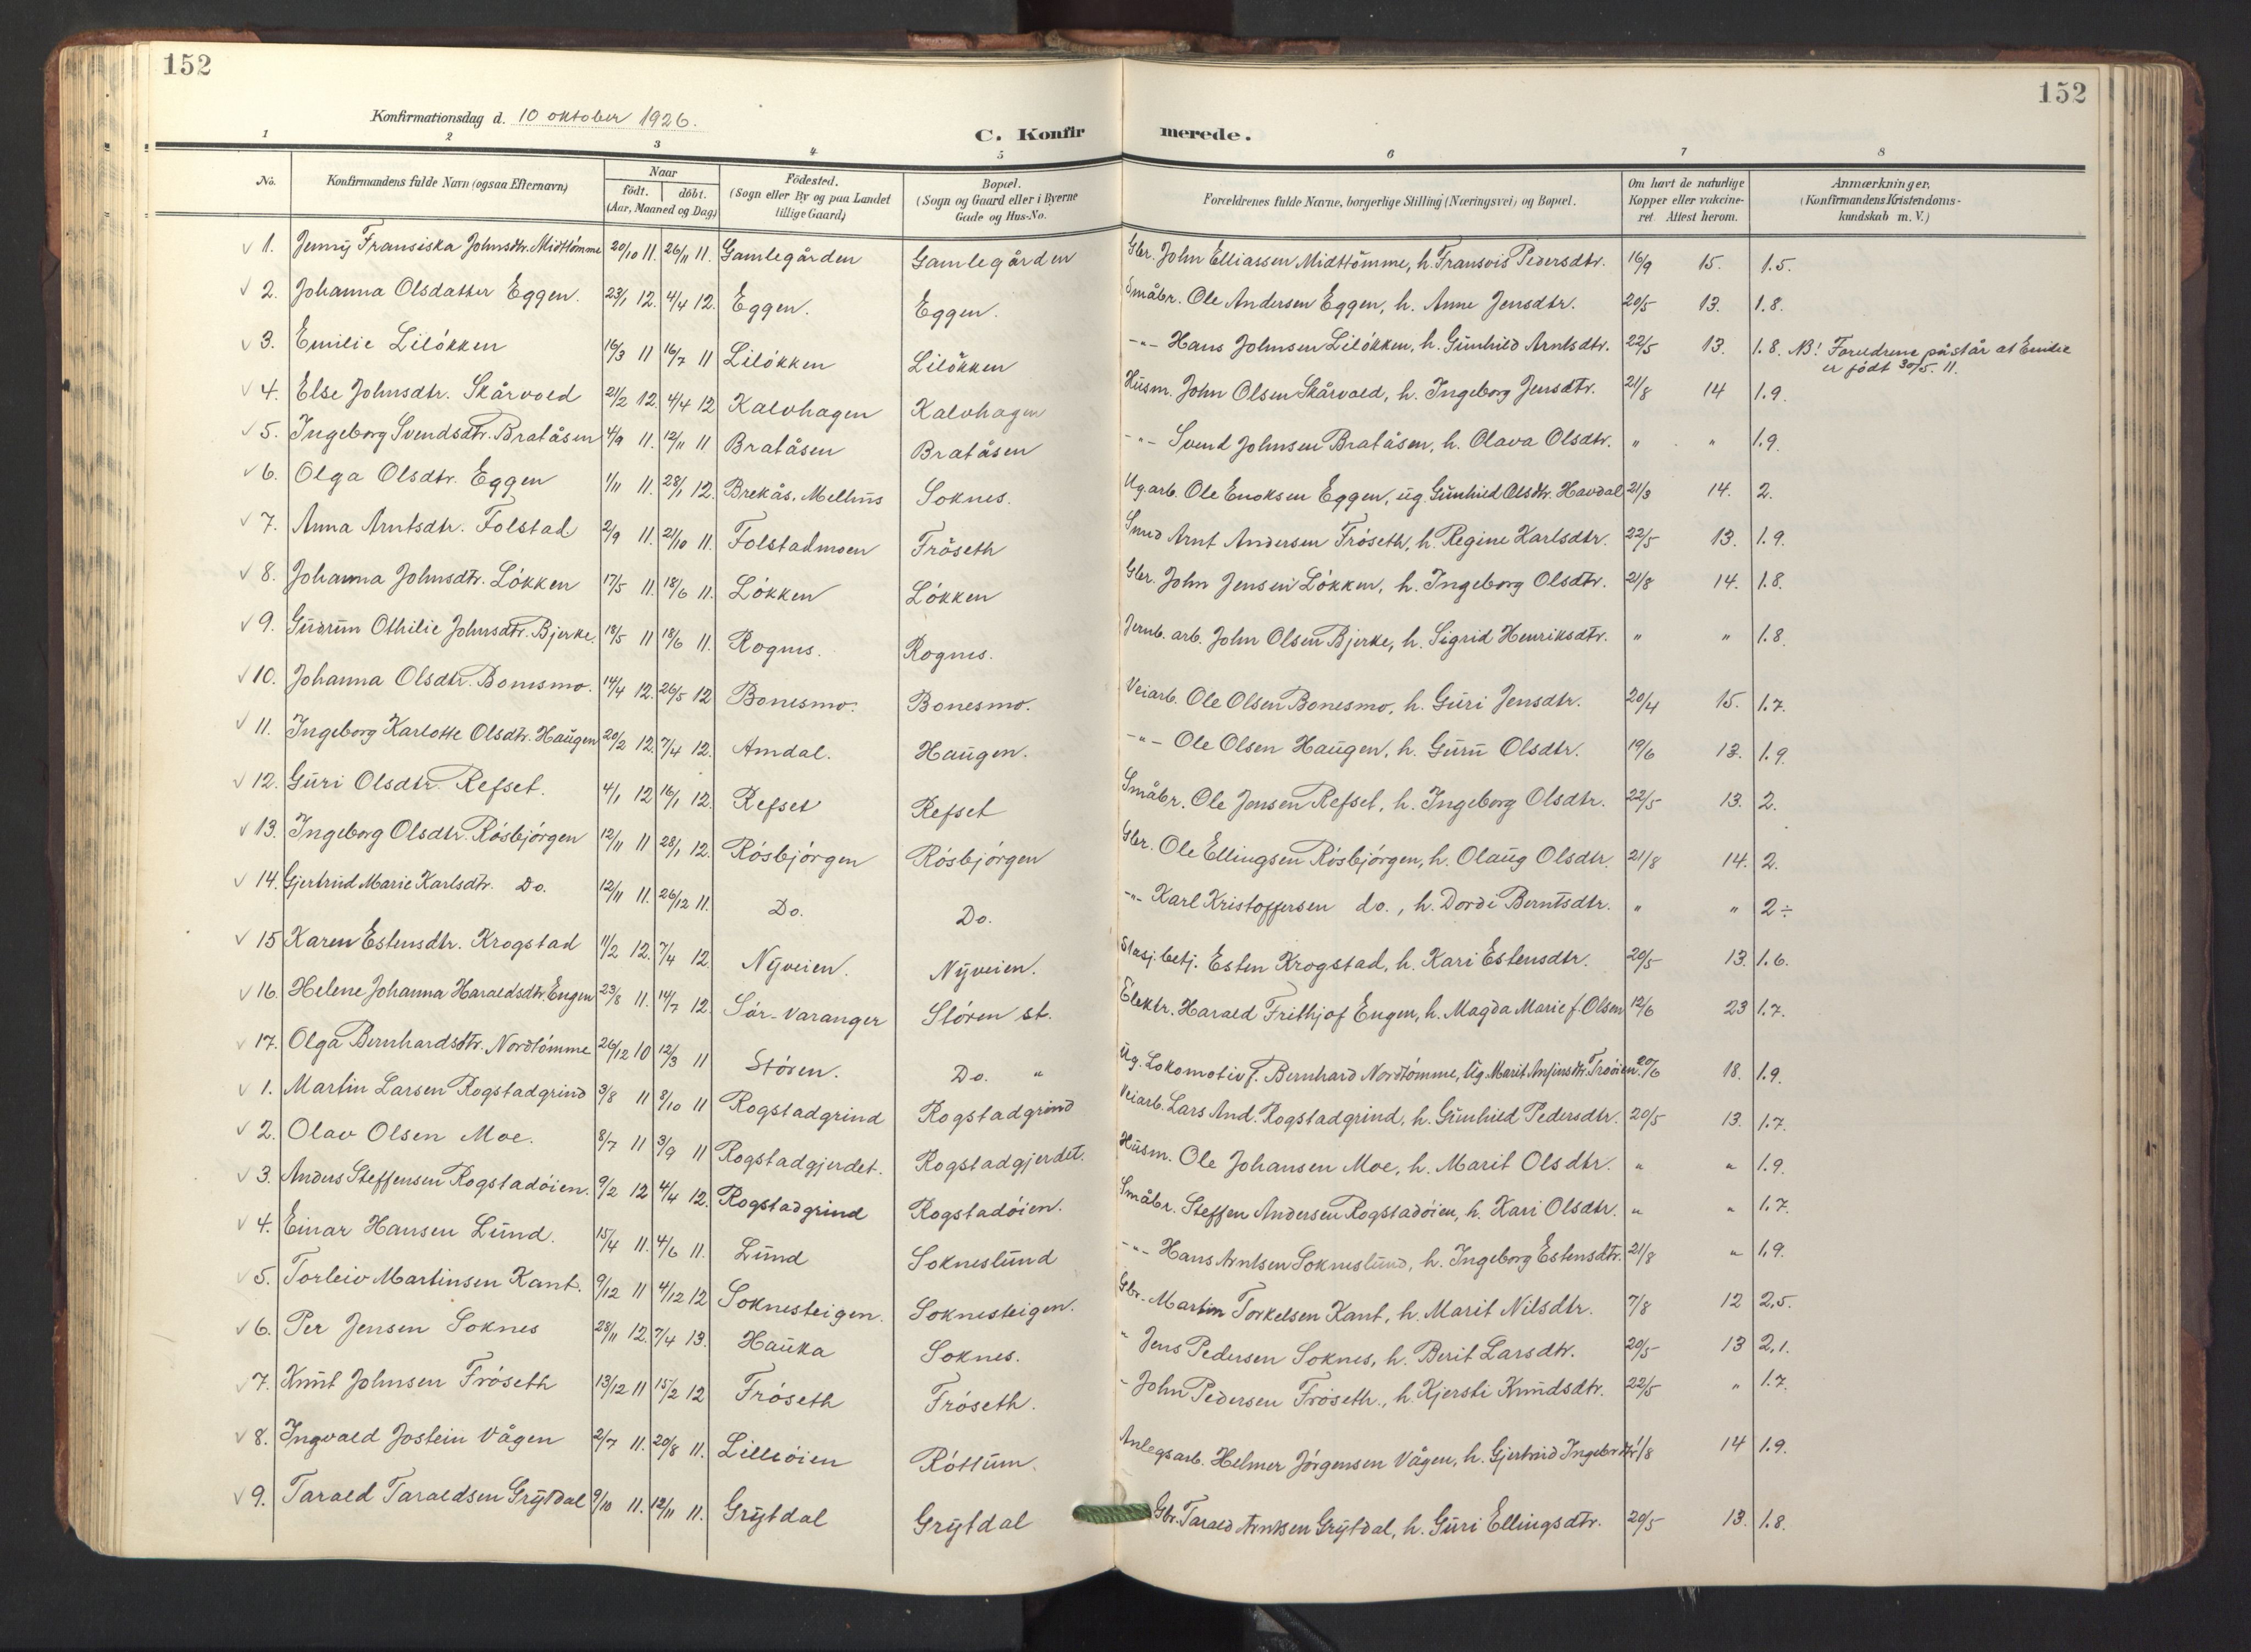 152
152
Konfirmationsdag d. 10 oktober 1926.
C. Konfir merede.
1 2 3 4 5 6 7 8
No. Konfirmandens fulde Navn (ogsaa Efternavn) Naar födt. döbt. (Aar, Maaned og Dag) Födested. (Sogn eller By og paa Landet tillige Gaard) Bopæl. (Sogn og Gaard eller i Byerne Gade og Hus-No. Forældrenes fulde Navne, borgerlige Stilling (Næringsvei) og Bopæl. Om havt de naturlige Kopper eller vakcineret. Attest herom. Anmærkninger. (Konfirmandens Kristendomskundskab m. V.)
✓ 1. Jenny Fransiska Johnsdtr. Midttömme 20/10 11. 26/11 11. Gamlegården Gamlegården Gbr. John Elliassen Midttömme, h. Fransvis Pedersdtr. 16/9 15. 1.5.
✓ 2. Johanna Olsdatter Eggen. 23/1 12. 4/4 12. Eggen. Eggen. Småbr. Ole Andersen Eggen, h. Anne Jensdtr. 20/5 13. 1.8.
✓ 3. Emilie Lilökken 16/3 11 16/7 11 Lilökken Lilökken -"- Hans Johnsen Lilökken, h. Gunhild Arntsdtr. 22/5 13. 1.8. NB! Foreldrene påstår at Emilie er födt 30/5. 11.
✓ 4. Else Johnsdtr. Skårvold 21/2 12. 4/4 12 Kalvhagen Kalvhagen Husm. John Olsen Skårvold, h. Ingeborg Jensdtr. 21/8 14 1.9.
✓ 5. Ingeborg Svendsdtr. Bratåsen 4/9 11. 12/11 11 Bratåsen Bratåsen -"- Svend Johnsen Bratåsen, h. Olava Olsdtr. " " 1.9.
✓ 6. Olga Olsdtr. Eggen 1/11 11. 28/1 12. Brekås, Melhus Soknes. Ug. arb. Ole Enoksen Eggen, ug. Gunhild Olsdtr. Havdal 21/3 14. 2.
✓ 7. Anna Arntsdtr. Folstad 2/9 11. 21/10 11. Folstadmoen Fröseth Smed Arnt Andersen Fröseth, h. Regine Karlsdtr. 22/5 13. 1.9.
✓ 8. Johanna Johnsdtr. Lökken 17/5 11. 18/6 11. Lökken Lökken Gbr. John Jensen Lökken, h. Ingeborg Olsdtr. 21/8 14. 1.8.
✓ 9. Gudrun Othilie Johnsdtr. Bjerke. 18/5 11 18/6 11. Rognes. Rognes. Jernb. arb. John Olsen Bjerke, h. Sigrid Henriksdtr. " " 1.8.
✓ 10. Johanna Olsdtr. Bonesmo. 14/4 12. 26/5 12 Bonesmo. Bonesmo. Veiarb. Ole Olsen Bonesmo, h. Guri Jensdtr. 20/4 15. 1.7.
✓ 11. Ingeborg Karlotte Olsdtr. Haugen 20/2 12. 7/4 12. Amdal. Haugen. -"- Ole Olsen Haugen, h. Guru Olsdtr. 19/6 13. 1.9.
✓ 12. Guri Olsdtr. Refset. 4/1 12 16/1 12. Refset Refset Småbr. Ole Jensen Refset, h. Ingeborg Olsdtr. 22/5 13. 2.
✓ 13. Ingeborg Olsdtr. Rösbjörgen 12/11 11 28/1 12. Rösbjörgen Rösbjörgen Gbr. Ole Ellingsen Rösbjörgen, h. Olaug Olsdtr. 21/8 14. 2.
✓ 14. Gjertrud Marie Karlsdtr. Do. 12/11 11. 26/12 11. Do. Do. -"- Karl Kristoffersen do., h. Dordi Berntsdtr. " " 2÷
✓ 15 Karen Estensdtr. Krogstad 11/2 12. 7/4 12. Nyveien. Nyveien. Stasj. betj. Esten Krogstad, h. Kari Estensdtr. 20/5 13. 1.6.
✓ 16. Helene Johanna Haraldsdtr. Engen 23/8 11. 14/7 12. Sör-Varanger Stören st. Elektr. Harald Frithjof Engen, h. Magda Marie f. Olsen 12/6 23 1.7.
✓ 17. Olga Bernhardsdtr. Nordtömme 26/12 10 12/3 11 Stören. Do. " Ug. Lokomotivf. Bernhard Nordtömme, Ug. Marit Anfinsdtr. Troöien 20/6 18. 1.9.
✓ 1. Martin Larsen Rogstadgrind 3/8 11 8/10 11 Rogstadgrind Rogstadgrind Veiarb. Lars And. Rogstadgrind, h. Gunhild Pedersdtr. 20/5 13. 1.7.
✓ 2. Olav Olsen Moe. 8/7 11 3/9 11 Rogstadgjerdet. Rogstadgjerdet. Husm. Ole Johansen Moe, h. Marit Olsdtr. " " 1.9.
✓ 3. Anders Steffensen Rogstadöien. 9/2 12 4/4 12. Rogstadgrind Rogstadöien. Småbr. Steffen Andersen Rogstadöien, h. Kari Olsdtr. " " 1.7.
✓ 4. Einar Hansen Lund. 15/4 11. 4/6 11. Lund Sokneslund -"- Hans Arntsen Sokneslund, h. Ingeborg Estensdtr. 21/8 " 1.9.
✓ 5. Torleiv Martinsen Kant. 9/12 11 4/12 12 Soknesteigen. Soknesteigen. Gbr. Martin Torkelsen Kant, h. Marit Nilsdtr. 7/8 12 2,5.
✓ 6. Per Jensen Soknes 28/11 12. 7/4 13. Hauka Soknes. " Jens Pedersen Soknes, h. Berit Larsdtr. 20/5 13 2,1.
✓ 7. Knut Johnsen Fröseth 13/12 11 15/2 12 Fröseth Fröseth. - John Pedersen Fröseth., h. Kjersti Knudsdtr. 22/5 " 1.7.
✓ 8. Ingvald Jostein Vågen 2/7 11. 20/8 11. Lilleöien Röttum. Anlegsarb. Helmer Jörgensen Vågen, h. Gjertrud Ingebr.dtr. 1/8 14 1.9.
✓ 9. Tarald Taraldsen Grytdal 9/10 11. 12/11 11. Grytdal Grytdal Gbr. Tarald Arntsen Grytdal, h. Guri Ellingsdtr. 20/5 13. 1.8.